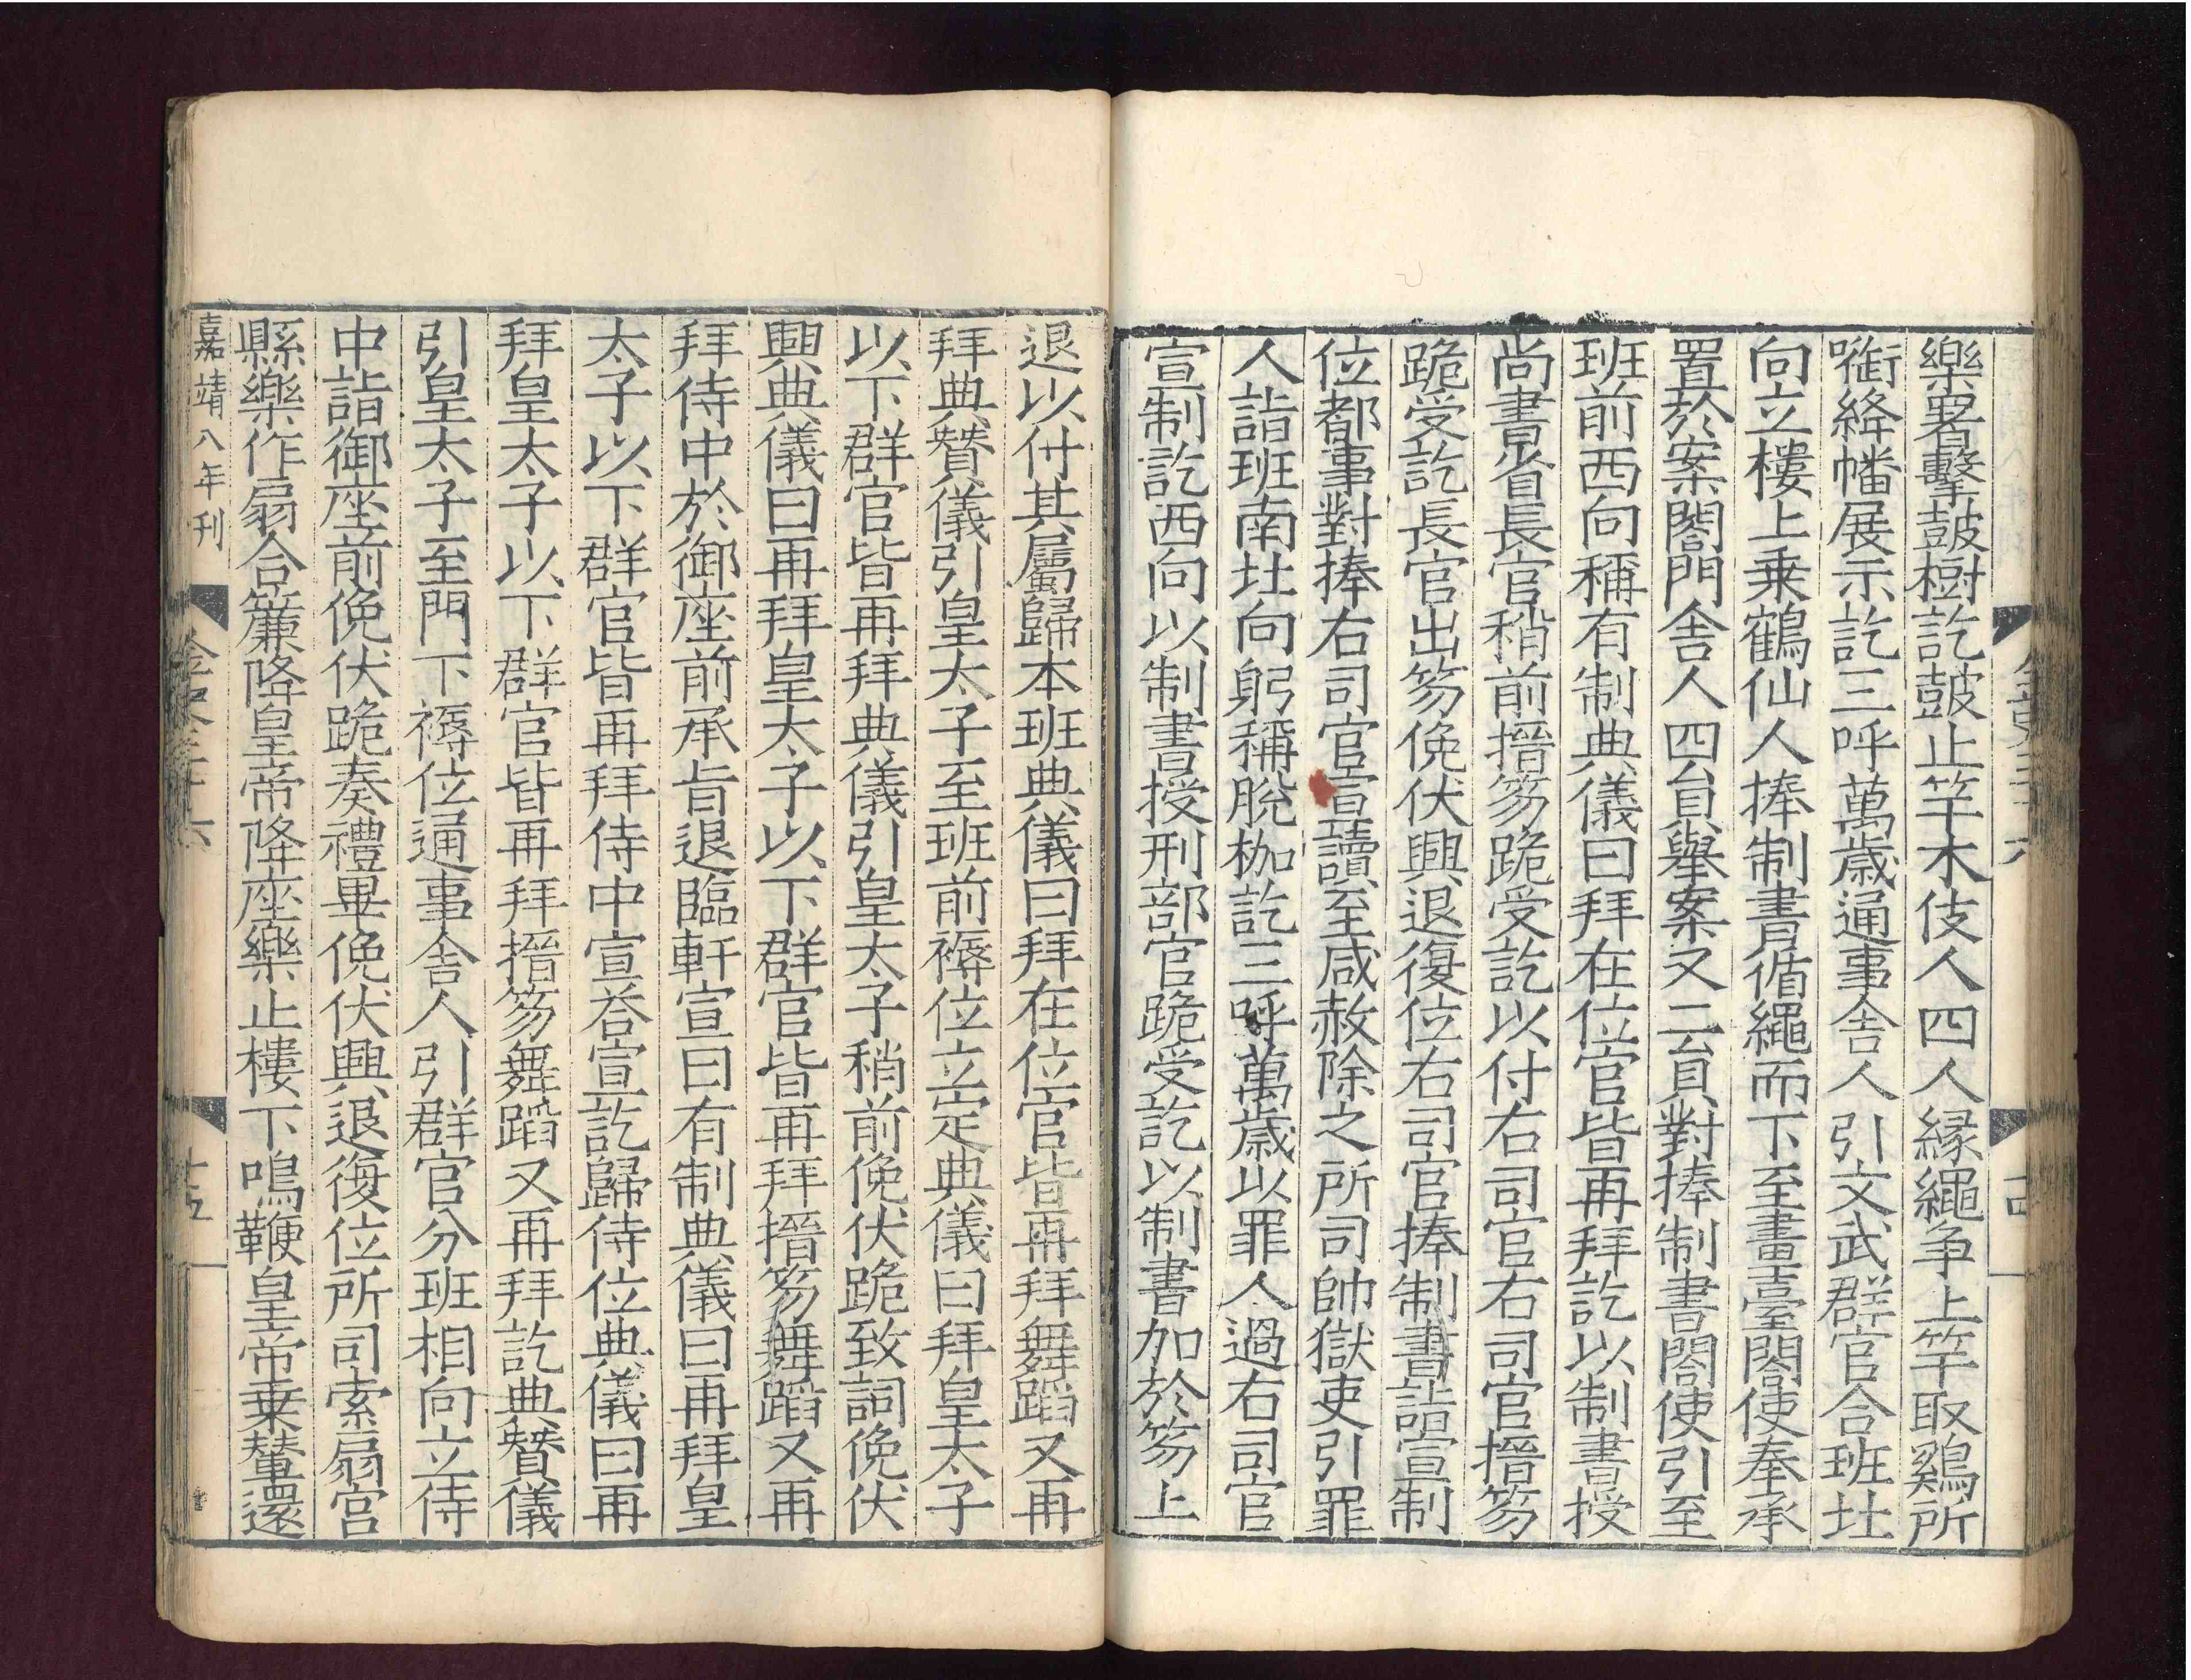 樂署擊鼓樹訖鼓止竿木伎人四人緣繩争上竿取鷄所
㘅絳幡展示訖三呼萬歲通事舍人引文武群官合班北
向立樓上乗鶴仙人捧制書循繩而下至畫臺閤使奉承
置於案閤門舍人四員舉案又二員對捧制書閤使引至
班前西向稱有制典儀曰拜在位官皆再拜訖以制書授
尚書省長官稍前搢笏跪受訖以付右司官右司官搢笏
跪受訖長官出笏俛伏興退復位右司官捧制書詣宣制
位都事對捧右司官宣讀至咸赦除之所司帥獄吏引罪
人詣班南北向躬稱脫枷訖三呼萬歲以罪人過右司官
宣制訖西向以制書授刑部官跪受訖以制書加於笏上
十四
退以付其屬歸本班典儀曰拜在位官皆再拜舞蹈又再
拜典贊儀引皇太子至班前褥位立定典儀曰拜皇太子
以下群官皆再拜典儀引皇太子稍前俛伏跪致詞俛伏
興典儀曰再拜皇太子以下群官皆再拜搢笏舞蹈又再
拜侍中於御座前承旨退臨軒宣曰有制典儀曰再拜皇
太子以下群官皆再拜侍中宣荅宣訖歸侍位典儀曰再
拜皇太子以下群官皆再拜搢笏舞蹈又再拜訖典贊儀
引皇太子至門下褥位通事舍人引群官分班相向立侍
中詣御座前俛伏跪奏禮畢俛伏興退復位所司索扇宫
縣樂作扇合簾降皇帝降座樂止樓下鳴鞭皇帝乗輦還
嘉靖八年刊 金史三十六 十五